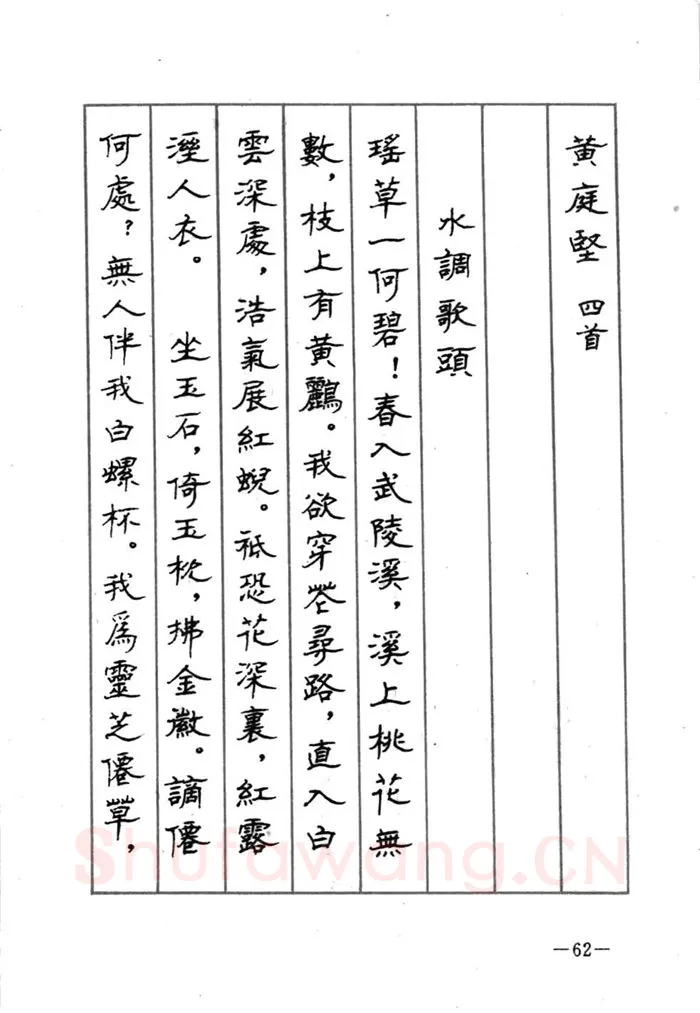 黄庭堅 四首
水調歌頭
瑶草一何碧！春入武陵溪，溪上桃花無
數，枝上有黄鸝。我欲穿花尋路，直入白
雲深處，浩氣展紅蜺。祗恐花深裏，紅露
溼人衣。 坐玉石，倚玉枕，拂金徽。謫僊
何處？無人伴我白螺杯。我爲靈芝僊草，
—62—
Shufawang.CN